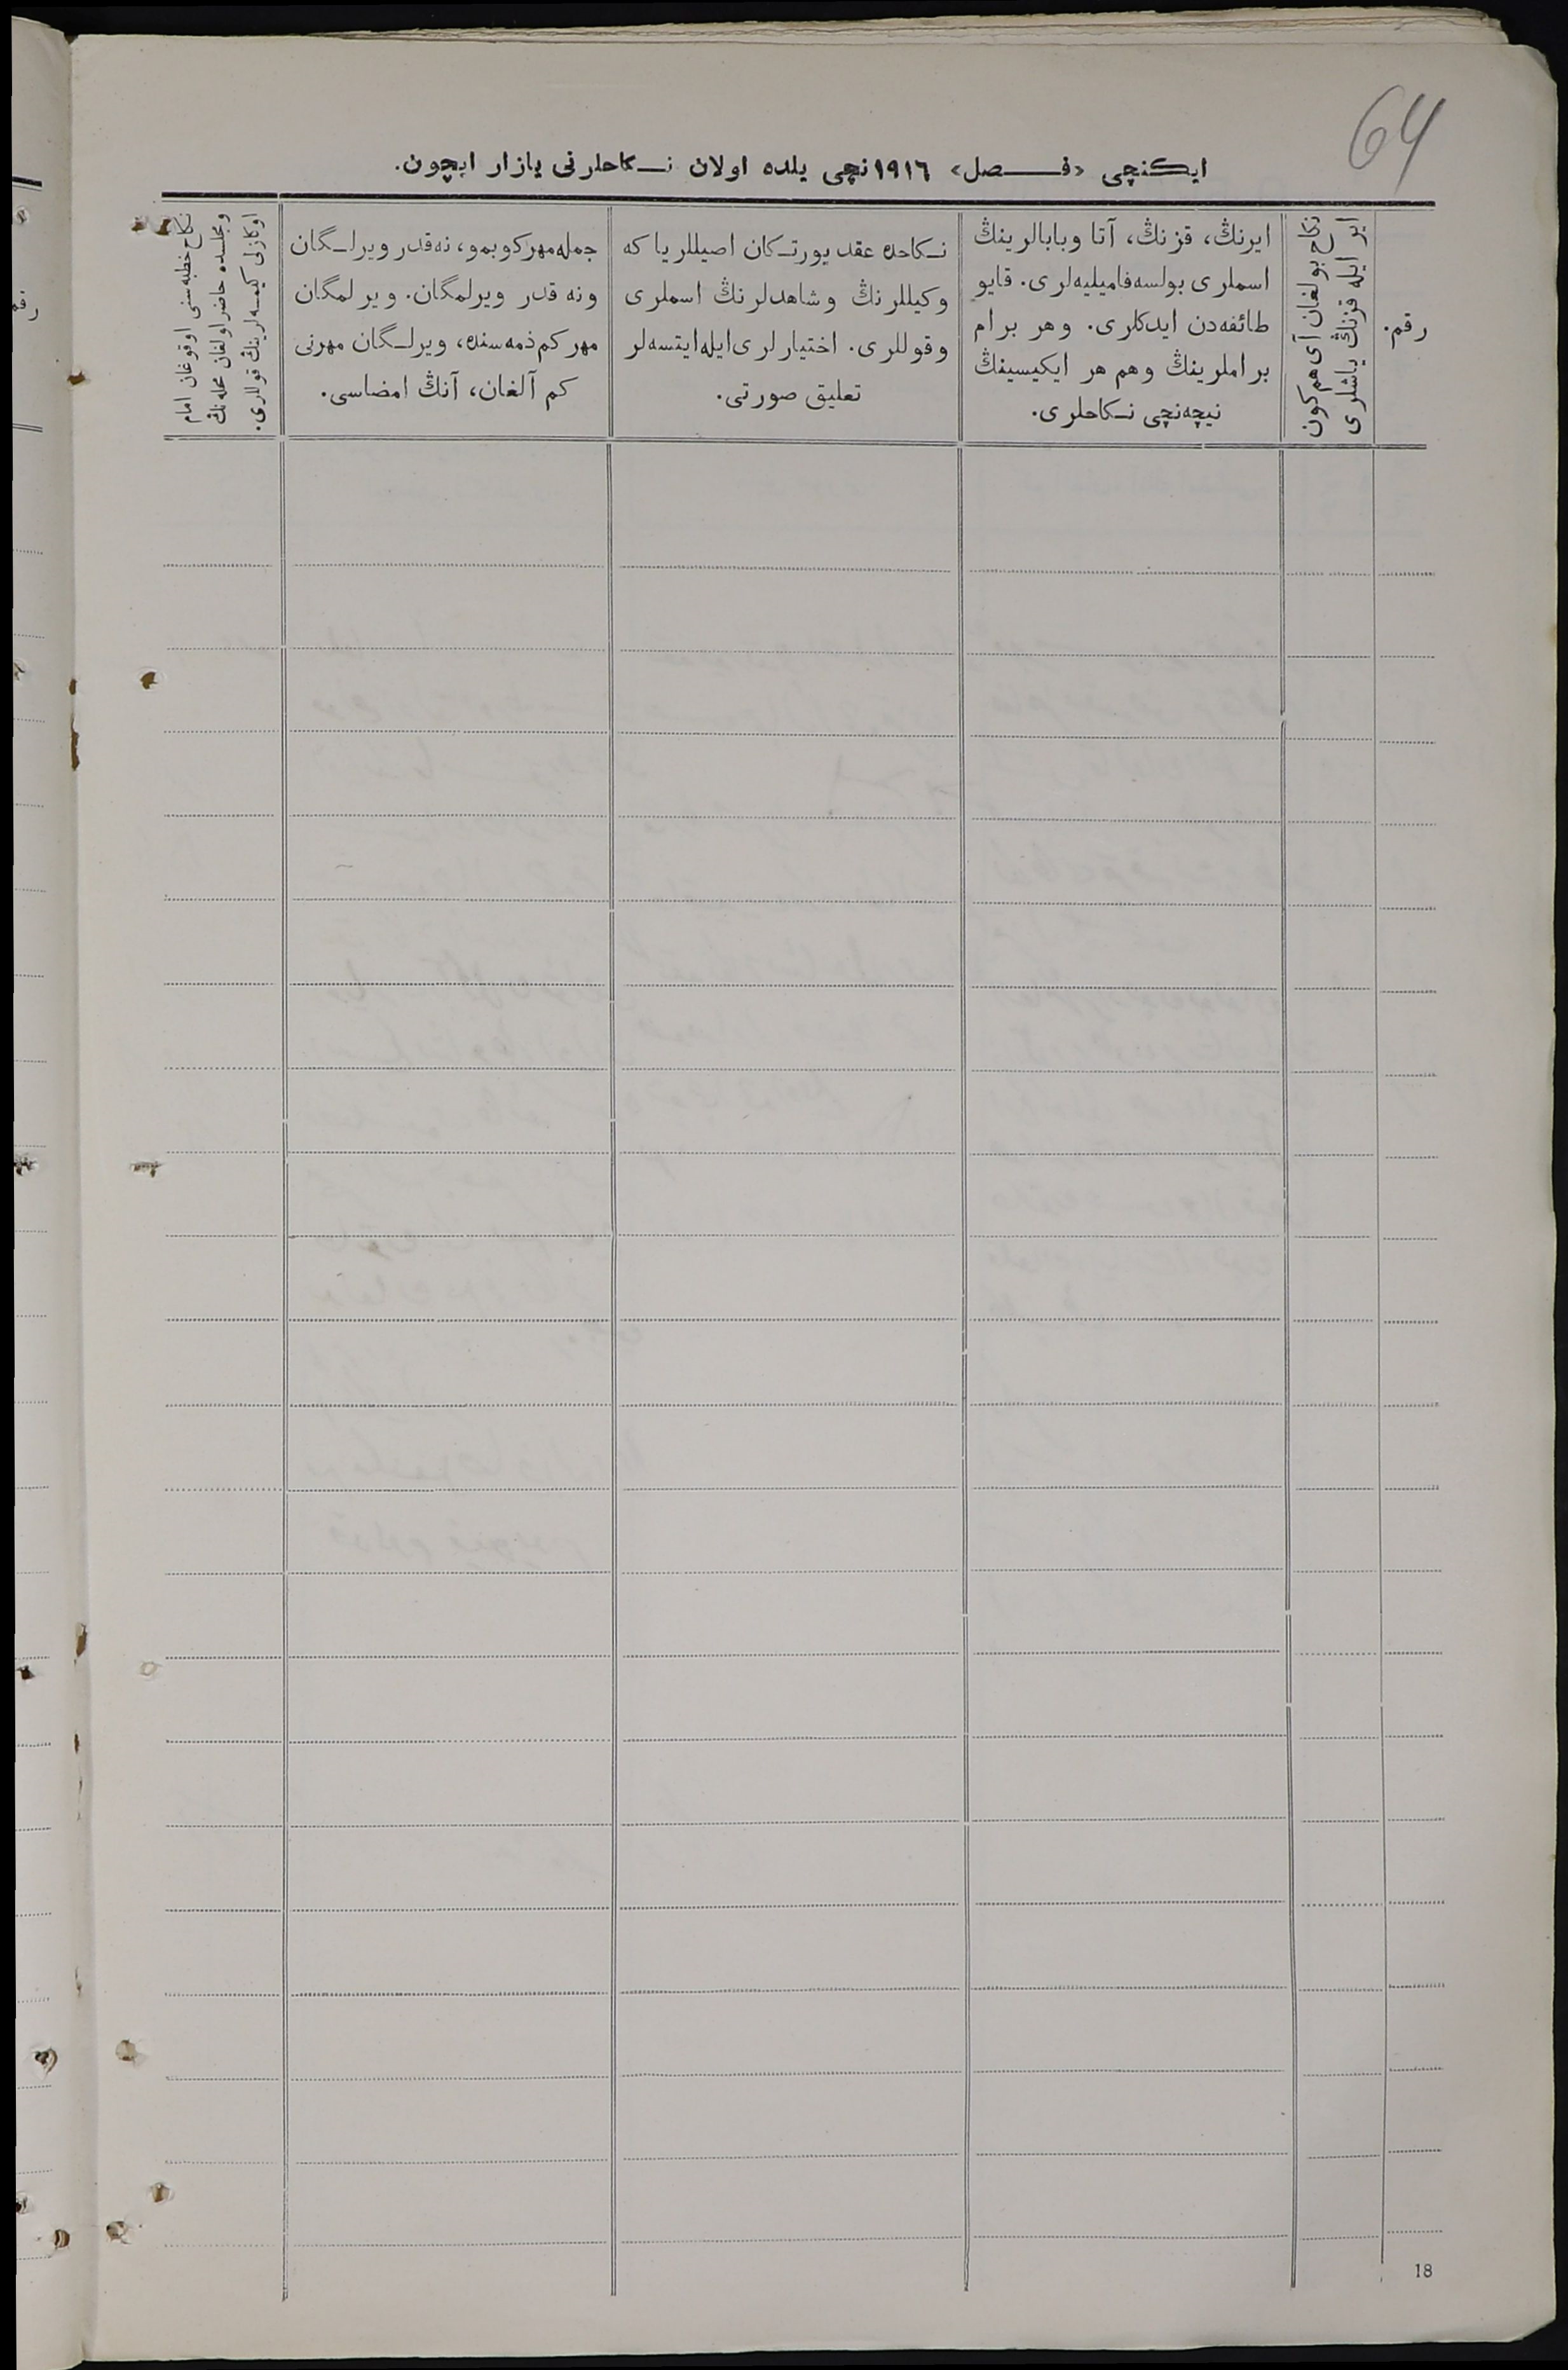 64
ایکنچی «فصل» ١٩١٦نچی یلده اولان نکاحلرنی یازار ایچون.
رقم.
ایر ایله قزنڭ یاشلری
نکاح بولغان آی هم کون
ایرنڭ، قزنڭ، آتا وبابالرینڭ
اسملری بولسه‌فامیلیه‌لری. قایو
طائفه‌دن ایدکلری. وهر برام
براملرینڭ وهم هر ایکیسینڭ
نیچه‌نچی نکاحلری.
نکاحده عقد یورتکان اصیللر یا که
وکیللرنڭ وشاهدلرنڭ اسملری
وقوللری. اختیارلری‌ایله‌ایتسه‌لر
تعلیق صورتی.
جمله‌مهرکوبمو، نه‌قدر ویرلگان
ونه قدر ویرلمگان. ویرلمگان
مهرکم‌ذمه‌سنده، ویرلگان مهرنی
کم آلغان، آنڭ امضاسی.
نکاح خطبه‌سنی اوقوغان امام
ومجلسده حاضر اولغان محله‌نڭ
اوکازلی کیمسه‌لرینڭ قوللری.
رقم
18